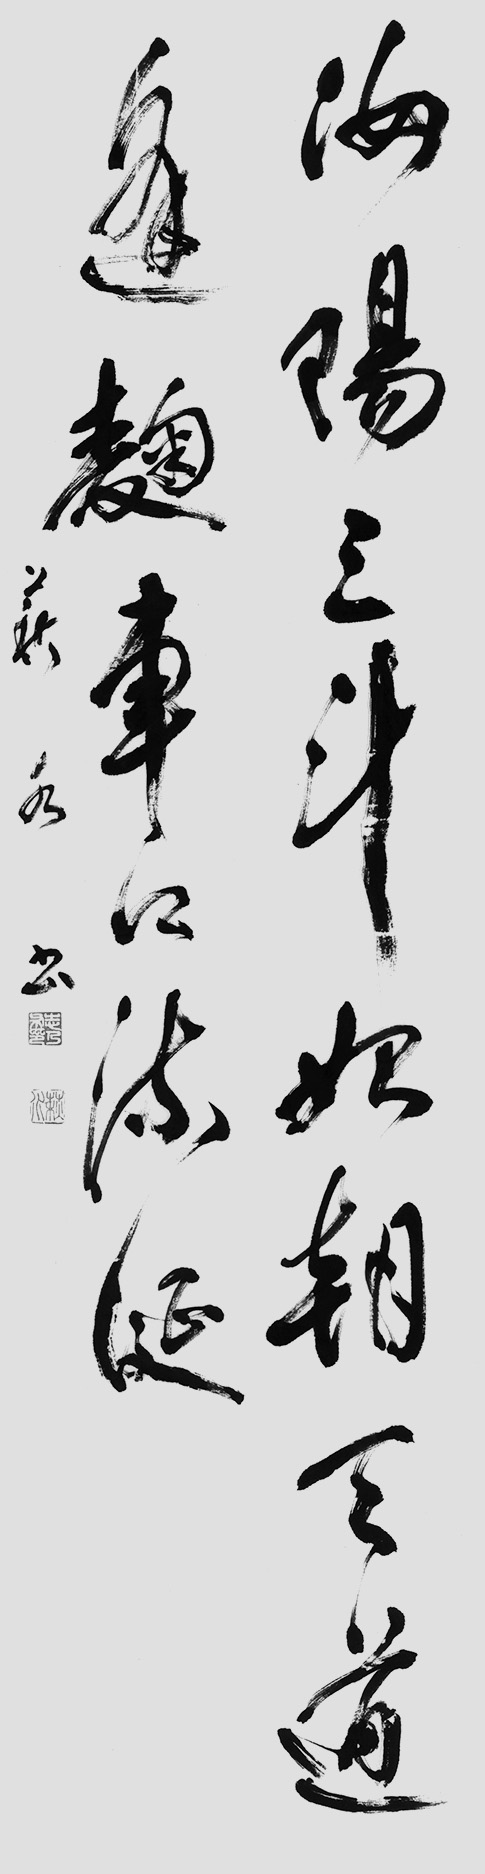 汝陽三斗始朝天道
逢麹車口流涎
萩水書